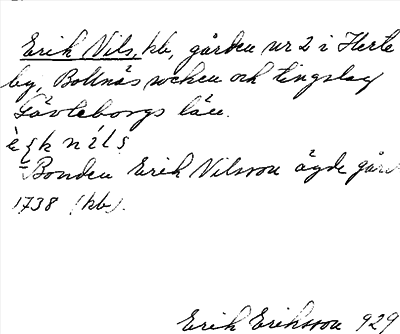 Erik Nils, kb, gården nr 2 i Herte
by, Bollnäs socken och tingslag
Gävleborgs län.
Bonden Erik Nilsson ägde gård
1738 (kb).
Erik Eriksson 929